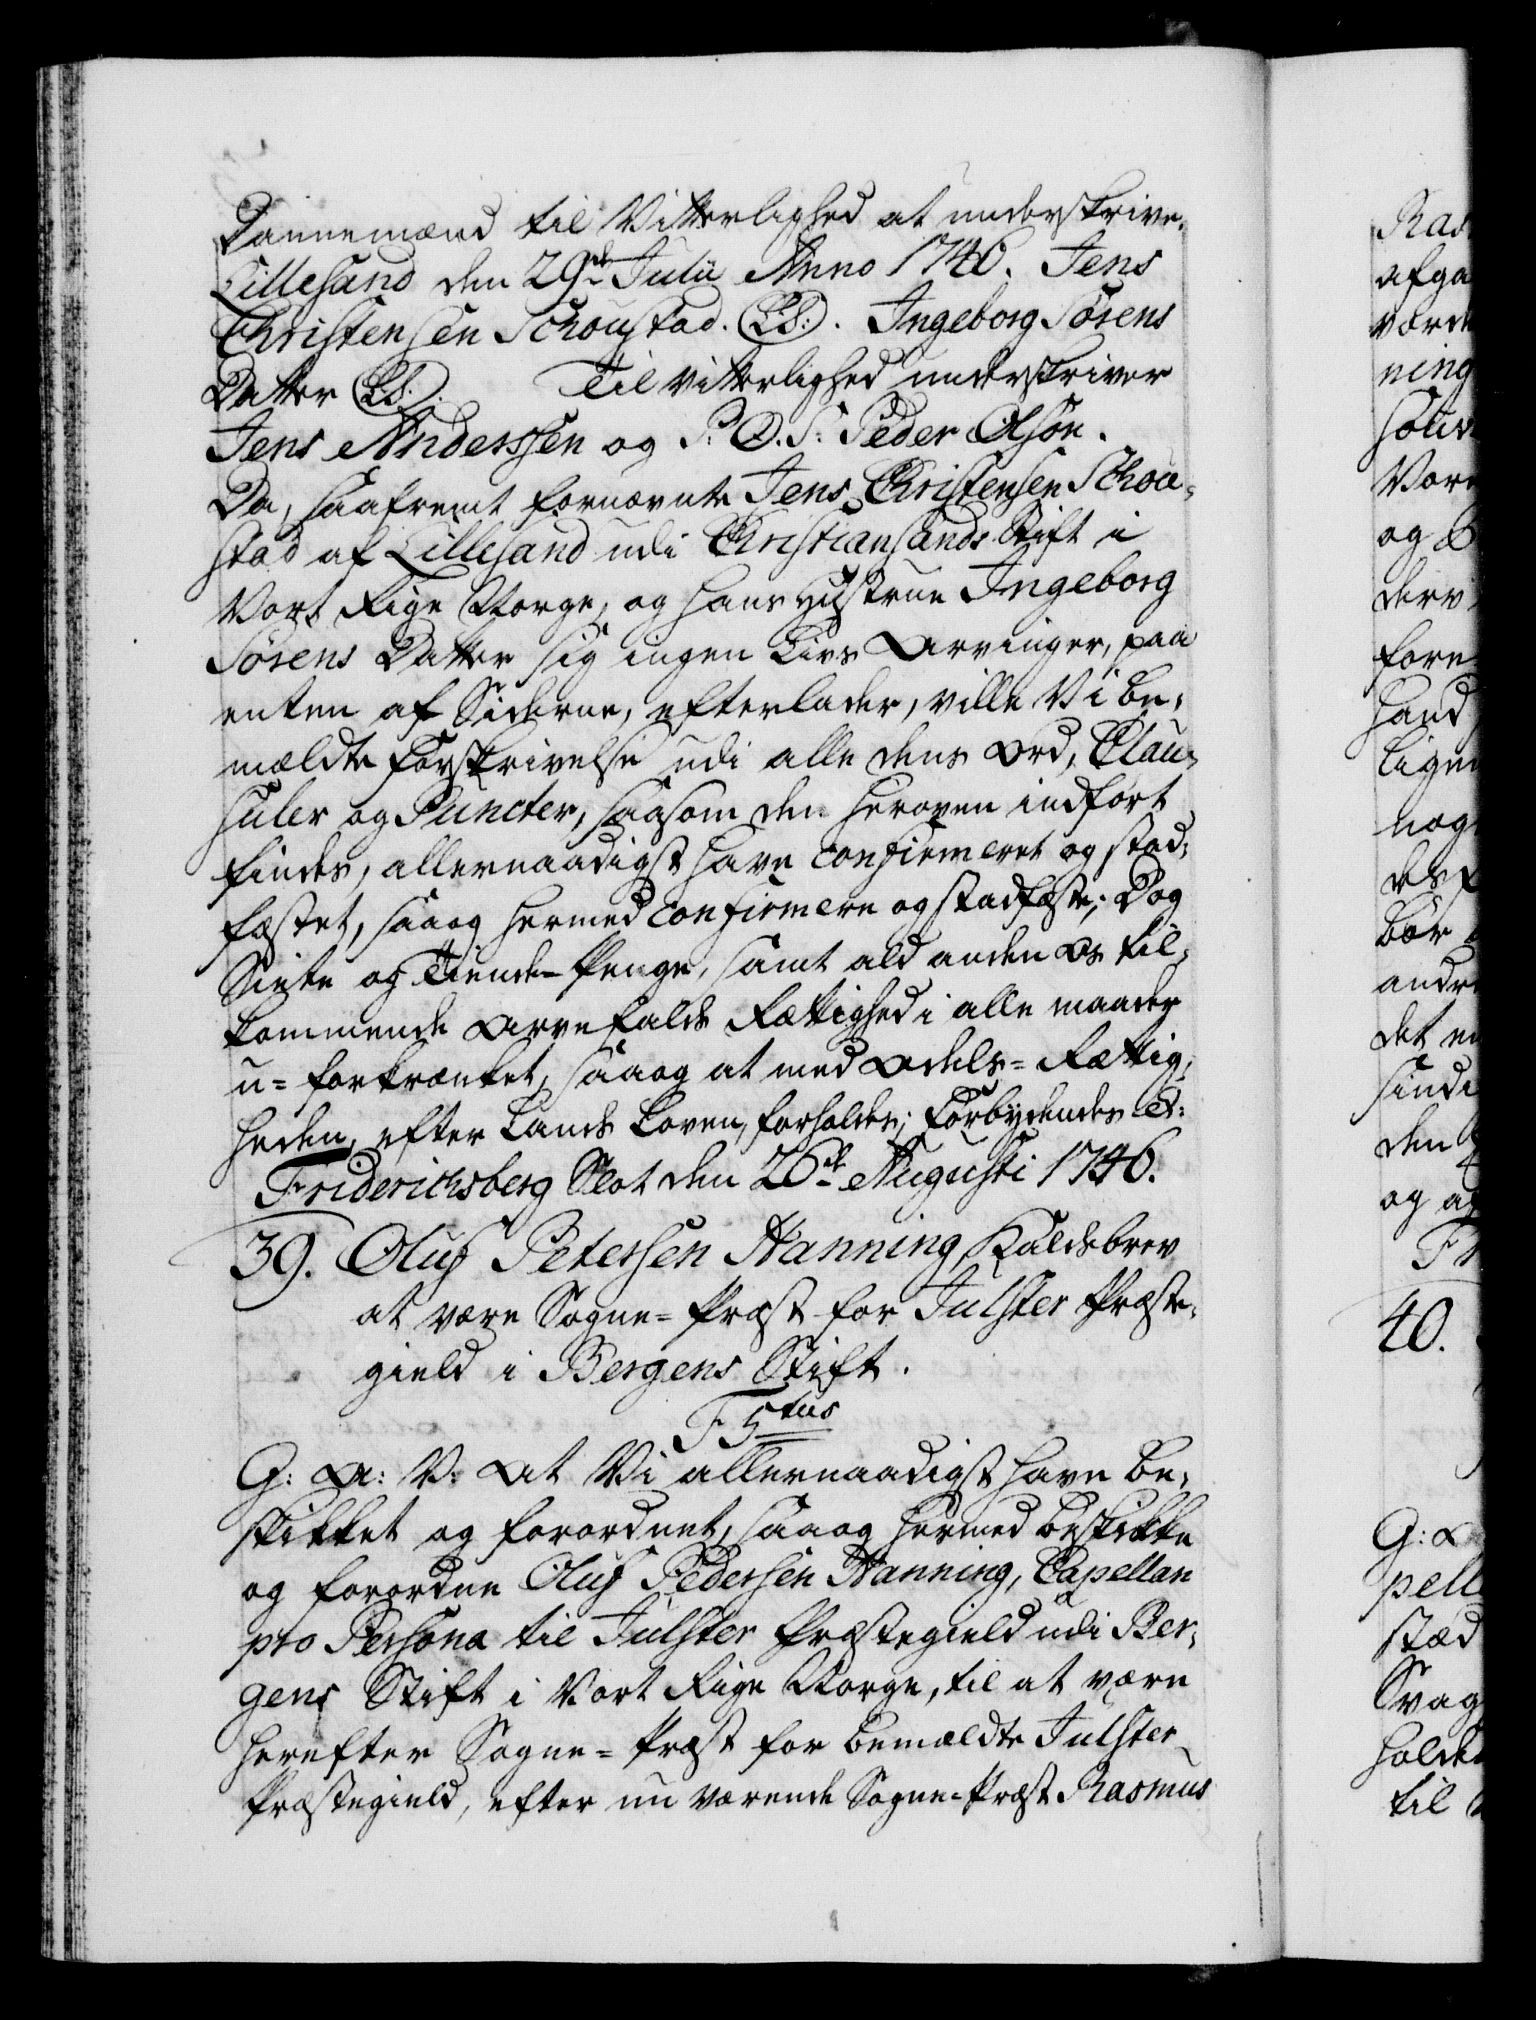 Dannemænd til Vitterlighed at underskrive.
Lillesand den 29de Julii Anno 1746. Jens
Christensen Schoustad. (LS:). Ingeborg Sørens
Datter (LS:). Til vitterlighed underskriver
Jens Anderssen og P. O. S: Peder Olsøn.
Da, saafremt fornævnte Jens Christensen Schou-
stad af Lillesand udi Christiansands Stift i
Vort Rige Norge, og hans Hustrue Ingeborg
Sørens Datter sig ingen Livs Arvinger, paa
enten af Siderne, efterlader, ville Vi be-
mældte Forskrivelse udi alle dens Ord, Clau-
suler og Puncter, saasom den heroven indført
findes, allernaadigst have confirmeret og stad-
fæstet, saa og hermed confirmere og stadfæste; Dog
Siette og Tiende-Penge, samt ald anden Os til-
kommende Arvefalds Rettighed i alle maader
u-forkrænket, saa og at med Odels-Rettig-
heden, efter Lands Loven, forholdes; Forbydendes etc:
Friderichsberg Slot den 26de Augusti 1746.
39. Oluf Petersen Hanning, Kaldsbrev
at være Sogne-Præst for Julster Præste-
gield i Bergens Stift.
F5tus
G: A: V: At Vi allernaadigst have be-
skikket og forordnet, saa og hermed beskikke
og forordne Oluf Pedersen Hanning, Capellan
pro Persona til Julster Præstegield udi Ber-
gens Stift i Vort Rige Norge, til at være
herefter Sogne-Præst for bemældte Julster
Præstegield, efter nu værende Sogne-Præst Rasmus
Ras
afga
være
ning
Vore
og
derv
fore
hand
ligne
nog
des
bør
andre
det
sindi
den
og
40.
G: A
pell
stæd
Svag
holde
til